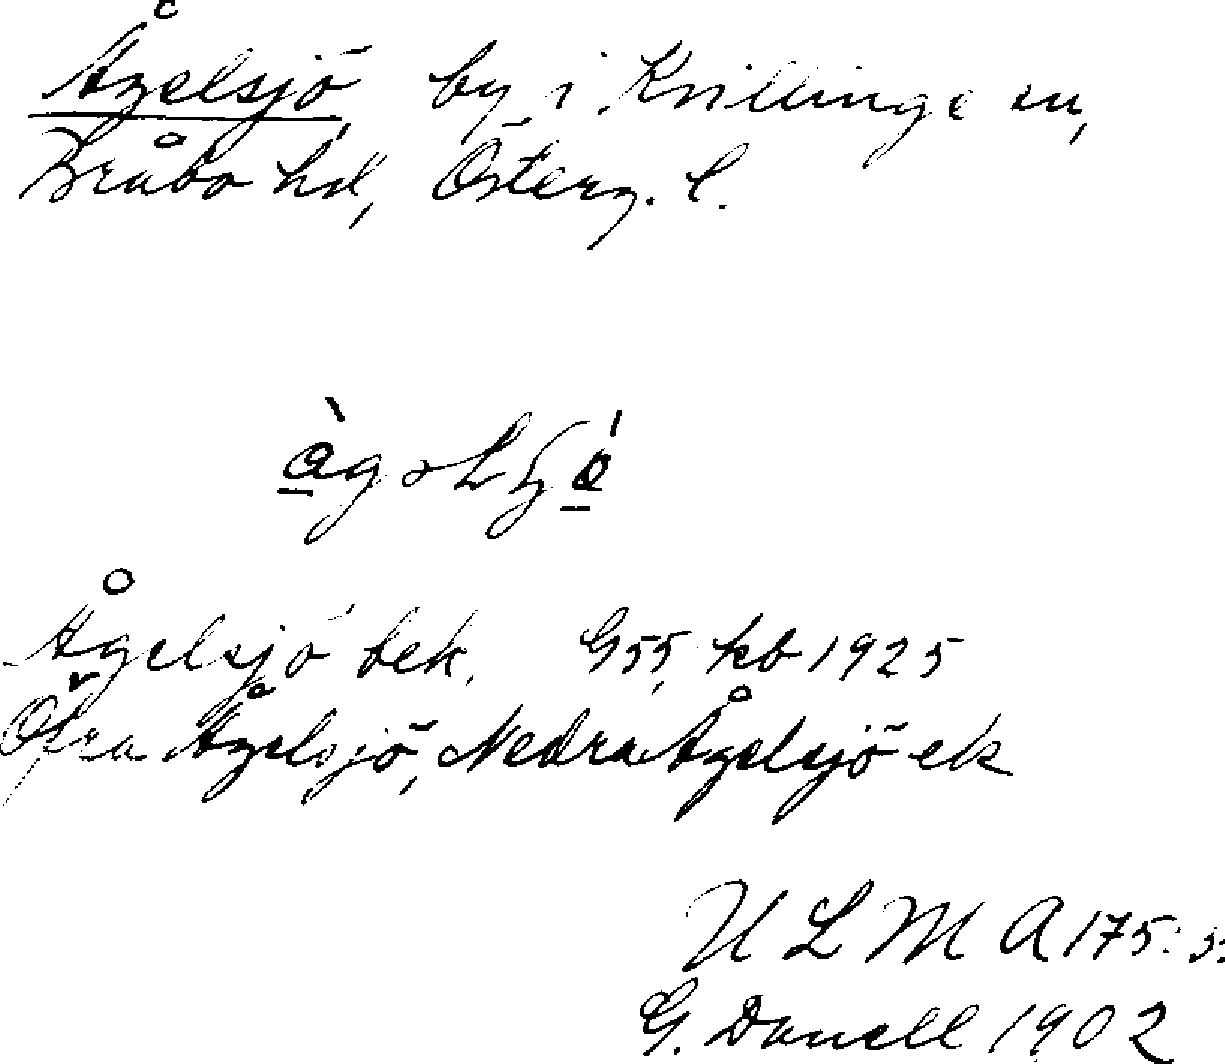 Ågelsjö by i Kvillinge sn,
Bråbo hd, Österg. l.
Ågelsjö bek. G55, kb 1925
Öfra Ågelsjö, Nedra Ågelsjö ek
ULMA 175:
G. Danell 1902